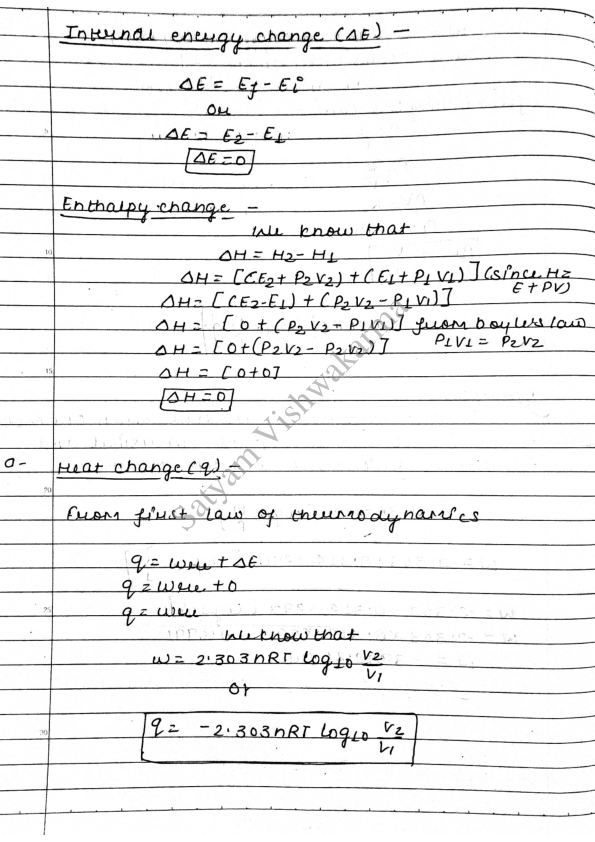 Internal energy change (ΔE) -
ΔE = Ef - Ei
or
ΔE = E2 - E1
ΔE = 0
Enthalpy change -
We know that
ΔH = H2 - H1
ΔH = [(E2 + P2V2) + (E1 + P1V1)] (since H = E + PV)
ΔH = [(E2 - E1) + (P2V2 - P1V1)]
ΔH = [0 + (P2V2 - P1V1)] from boyles law
ΔH = [0 + (P2V2 - P2V2)] P1V1 = P2V2
ΔH = [0 + 0]
ΔH = 0
Satyam Vishwakarma
a- Heat change (q) -
From first law of thermodynamics
q = wrev + ΔE
q = wrev + 0
q = wrev
We know that
w = 2.303nRT log10 V2/V1
or
q = -2.303nRT log10 V2/V1